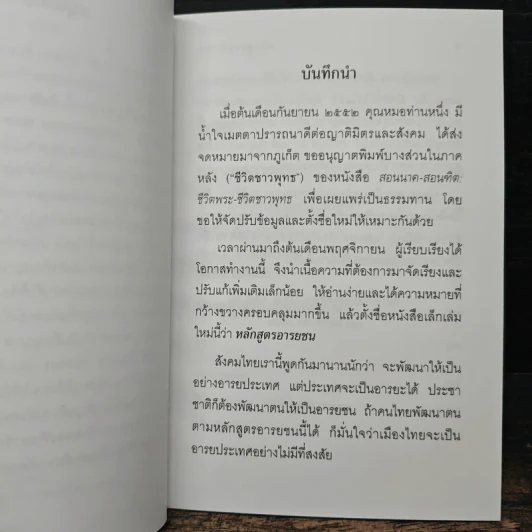 บันทึกนำ
เมื่อต้นเดือนกันยายน ๒๕๕๒ คุณหมอท่านหนึ่ง มี
น้ำใจเมตตาปรารถนาดีต่อญาติมิตรและสังคม ได้ส่ง
จดหมายมาจากภูเก็ต ขออนุญาตพิมพ์บางส่วนในภาค
หลัง ("ชีวิตชาวพุทธ") ของหนังสือ สอนนาค-สอนทิด:
ชีวิตพระ-ชีวิตชาวพุทธ เพื่อเผยแพร่เป็นธรรมทาน โดย
ขอให้จัดปรับข้อมูลและตั้งชื่อใหม่ให้เหมาะกันด้วย
เวลาผ่านมาถึงต้นเดือนพฤศจิกายน ผู้เรียบเรียงได้
โอกาสทำงานนี้ จึงนำเนื้อความที่ต้องการมาจัดเรียงและ
ปรับแก้เพิ่มเติมเล็กน้อย ให้อ่านง่ายและได้ความหมายที่
กว้างขวางครอบคลุมมากขึ้น แล้วตั้งชื่อหนังสือเล็กเล่ม
ใหม่นี้ว่า หลักสูตรอารยชน
สังคมไทยเรานี้พูดกันมานานนักว่า จะพัฒนาให้เป็น
อย่างอารยประเทศ แต่ประเทศจะเป็นอารยะได้ ประชา
ชาติก็ต้องพัฒนาตนให้เป็นอารยชน ถ้าคนไทยพัฒนาตน
ตามหลักสูตรอารยชนนี้ได้ ก็มั่นใจว่าเมืองไทยจะเป็น
อารยประเทศอย่างไม่มีที่สงสัย